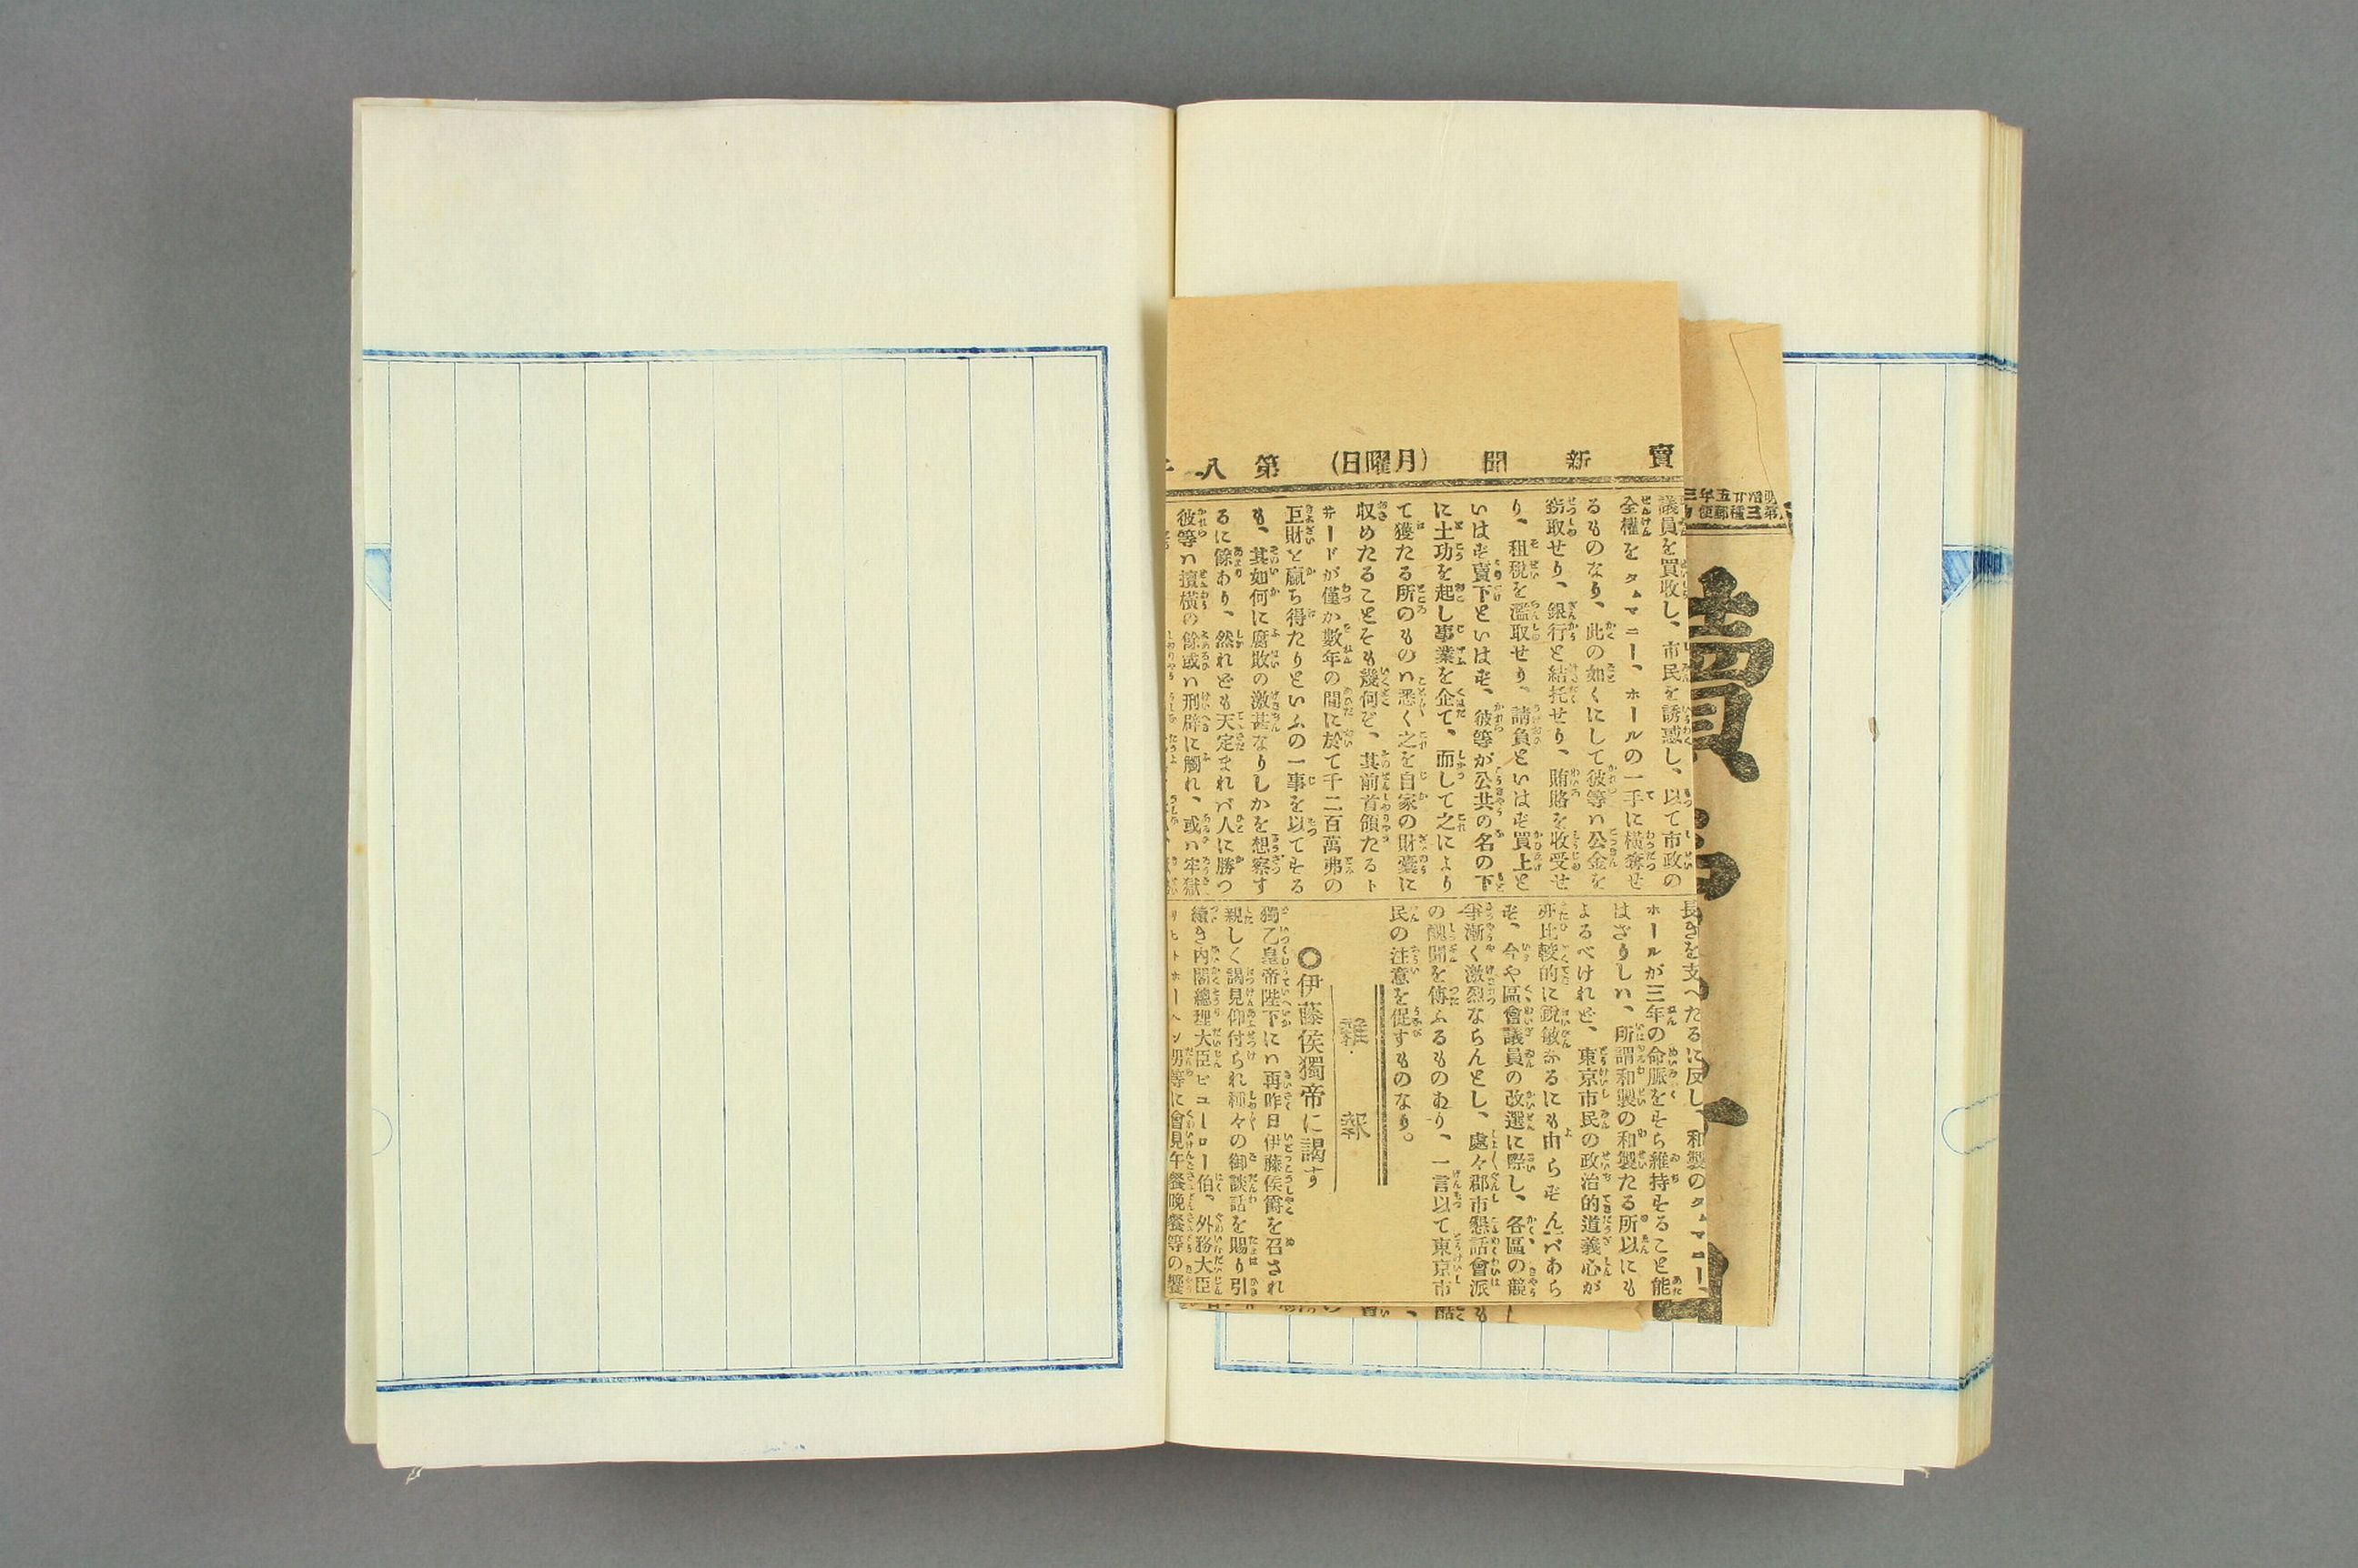 賣新聞(月曜日)第八千
議員を買收し、市民を誘惑し、以て市政の
全權をタムマニー、ホールの一手に横奪せ
るものなり、此の如くにして彼等ハ公金を
竊取せり、銀行と結托せり、賄賂を收受せ
り、租税を濫取せり、請負といはず買上と
いはず賣下といはず、彼等が公共の名の下
に土功を起し事業を企て、而して之により
て獲たる所のものハ悉く之を自家の財嚢に
収めたることそも幾何ぞ、其前首領たるト
ヰードが僅か數年の間に於て千二百萬弗の
巨財を贏ち得たりといふの一事を以てする
も、其如何に腐敗の激甚なりしかを想察す
るに餘あり、然れども天定まれバ人に勝つ
彼等ハ擅横の餘或ハ刑辟に觸れ、或ハ牢獄
長きを支へたるに反し、和製のタムマニー、
ホールが三年の命脈をすら維持すること能
はざりしハ、所謂和製の和製たる所以にも
よるべけれど、東京市民の政治的道義心が
亦比較的に鋭敏なるにも由らずんバあら
ず、今や區會議員の改選に際し、各區の競
爭漸く激烈ならんとし、處々郡市懇話會派
の醜聞を傳ふるものあり、一言以て東京市
民の注意を促すものなり。
雜報
◎伊藤侯獨帝に謁す
獨乙皇帝陛下にハ再昨日伊藤侯爵を召され
親しく謁見仰付られ種々の御談話を賜り引
續き内閣總理大臣ビユーロー伯、外務大臣
リヒトホーヘン男等に會見午餐晩餐等の饗